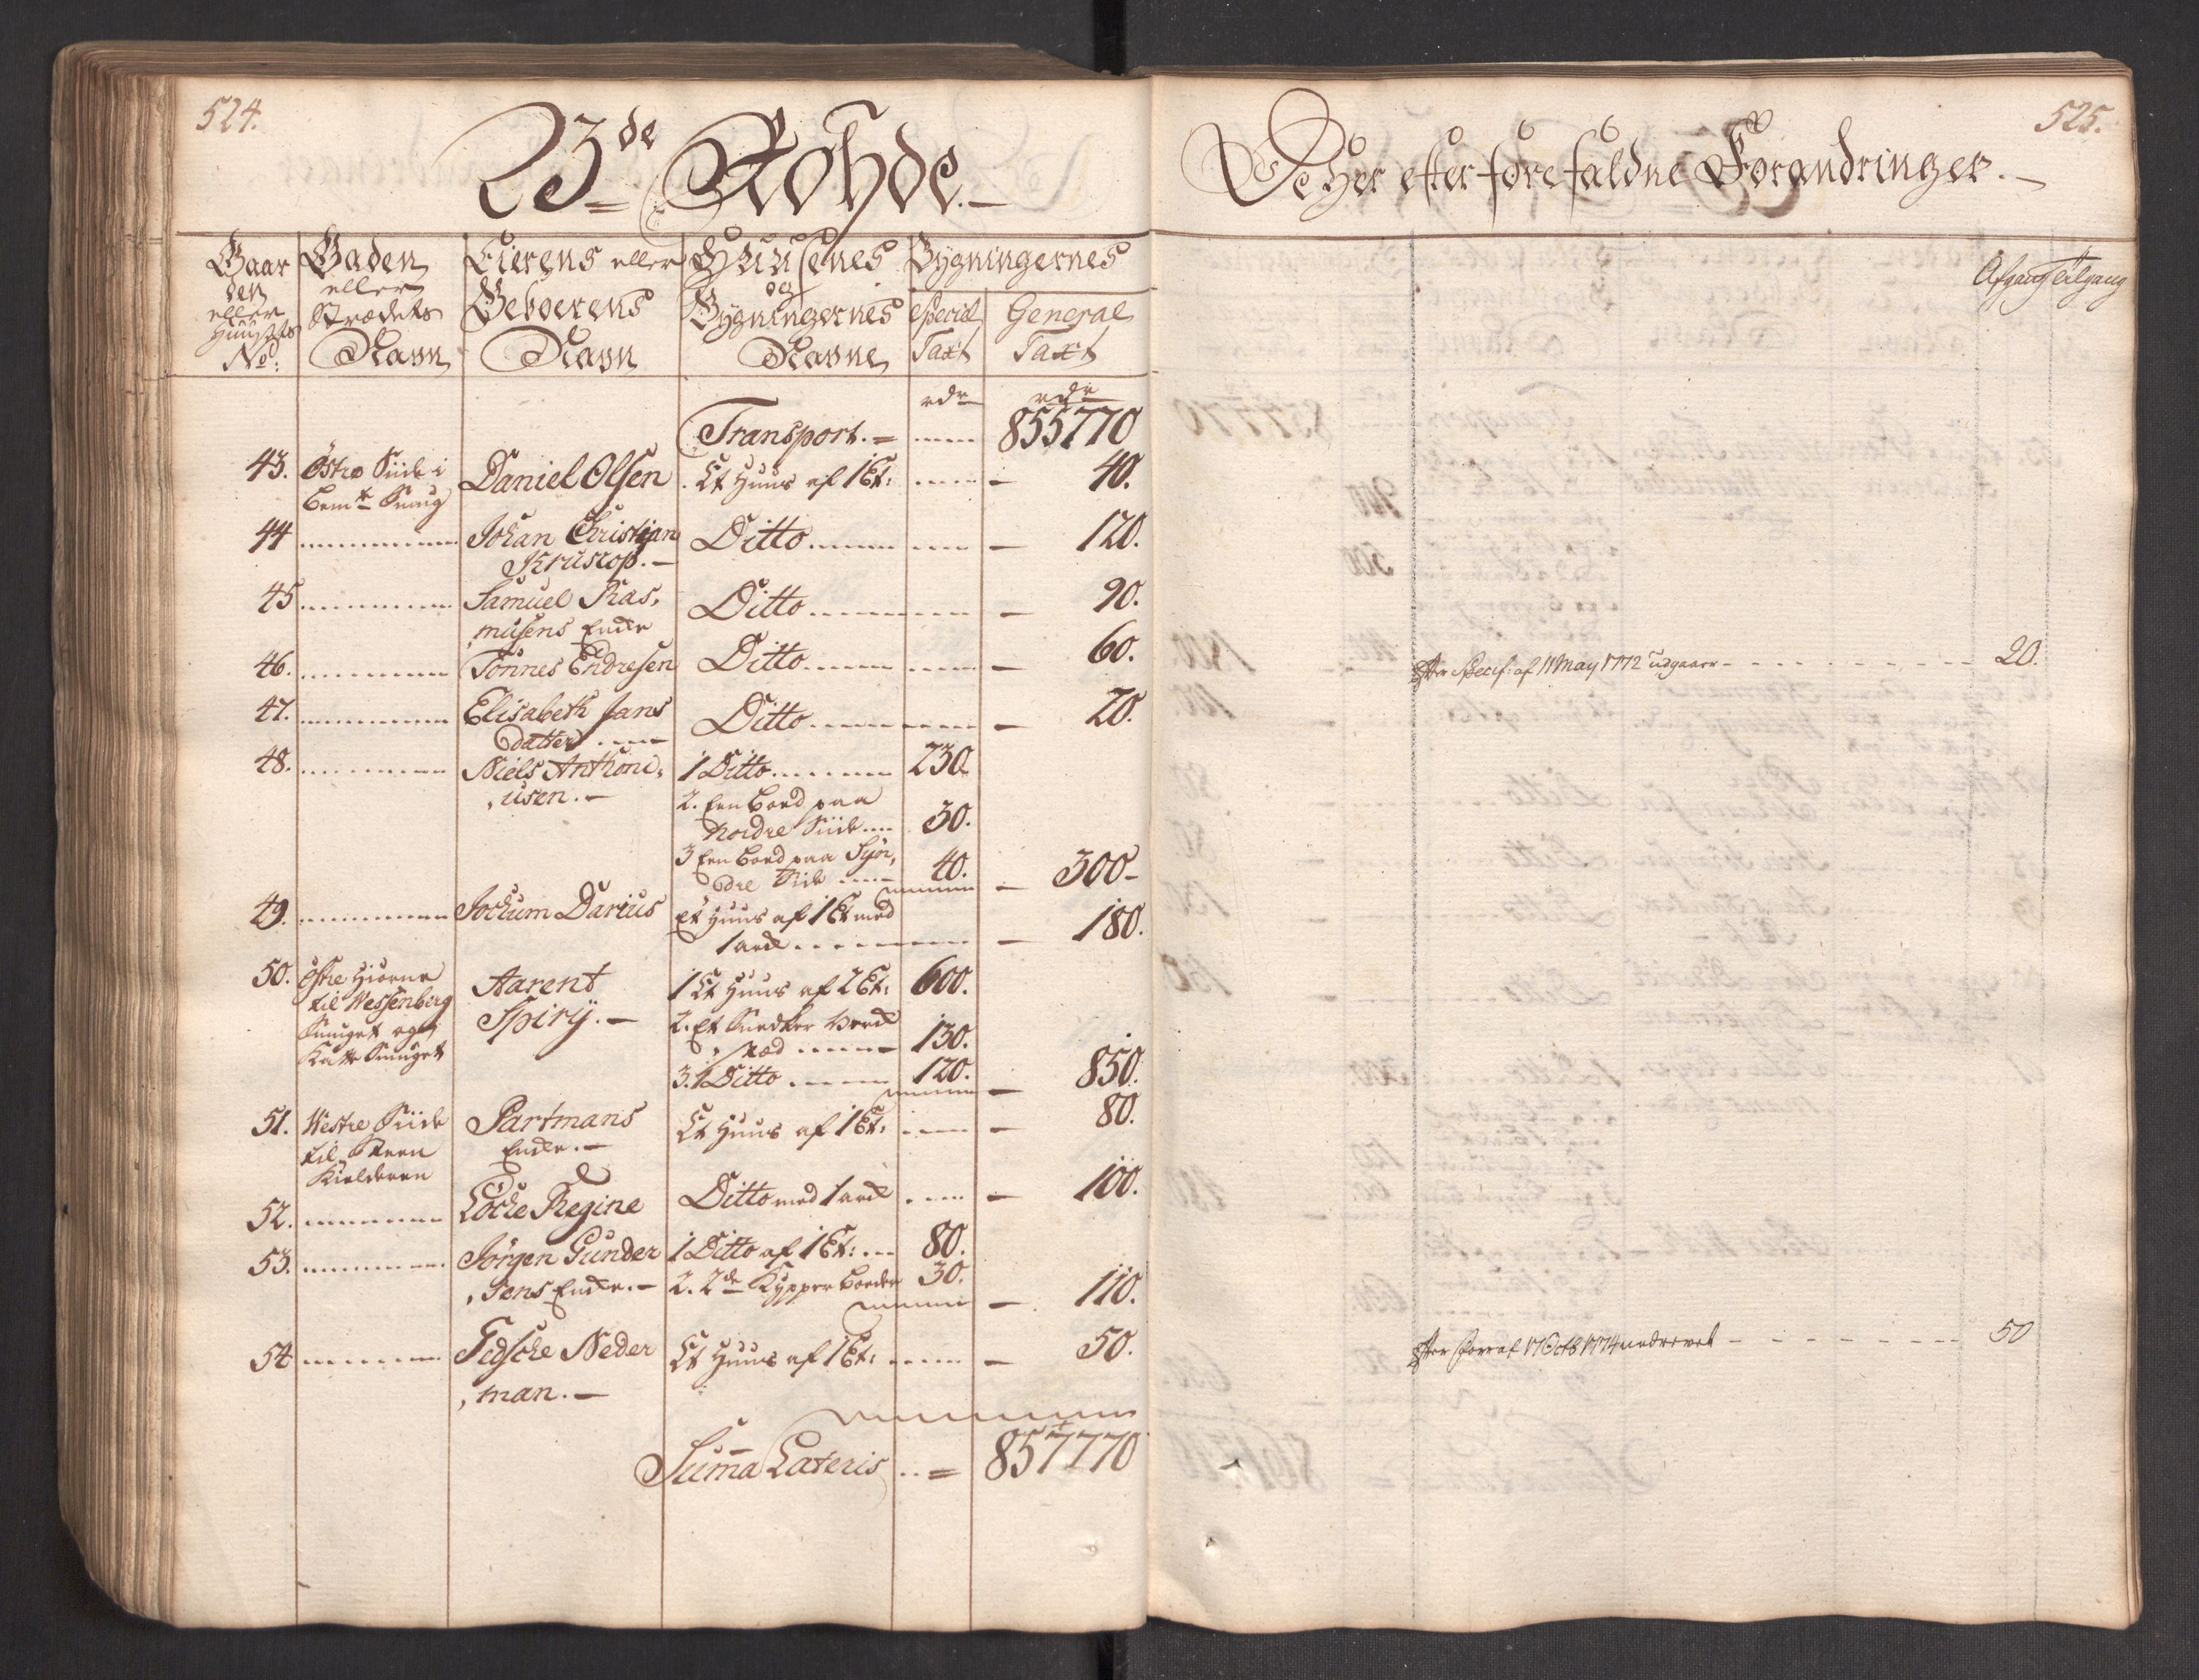 524.
23de Rohde.
Gaarden eller Huusets No: | Gaden eller Strædets Navn | Eierens eller Beboerens Navn | Huusenes og Bygningernes Navne | Bygningernes
Special Taxt | General Taxt
rdr | rdr
Transport. = ..... 855770
43. Østre Siide i Bemte Smug | Daniel Olsen | Et Huus af 1 Et: ..... 40.
44 ..... Johan Christian Kruskop. | Ditto ..... 120.
45 ..... Samuel Rasmusens Encke | Ditto ..... 90.
46. ..... Tönnes Endresen | Ditto ..... 60.
47. ..... Elisabeth Jans datter | Ditto ..... 20.
48. ..... Niels Anthoniusen. | 1 Ditto ..... 230.
2. Een Boed paa Nordre Siide .... 30.
3 Een Boed paa Syndre Side .... 40. | 300-
49. ..... Jochum Darius | Et Huus af 1 Et med 1 ..... 180.
50. Østre Hiørne til Wessenberg Smuget og Katte Smuget | Aarent Spirÿ. | 1 Et Huus af 2 Et: 600.
2. Et Snedker Værksted ..... 130.
3. 1 Ditto ..... 120. | 850.
51. Westre Siide til Steen Kielderen | Partmans Encke. | Et Huus af 1 Et: ..... 80.
52. ..... Regine | Ditto med 1 ..... 100.
53. ..... Jørgen Gundersens Encke. | 1 Ditto af 1 Et: ... 80.
2. 2de Kypper Boeder 30. | 110.
54 ..... Nederman. | Et Huus af 1 Et: ..... 50.
Summa Lateris .. = 857770
525.
De Her efter forefaldne Forandringer.
Afgang Tilgang
Efter Specif: af 11 May 1772 udgaaer - - - 20.
Efter Forr af 17 Octb 1774 nedrevet - - - 50